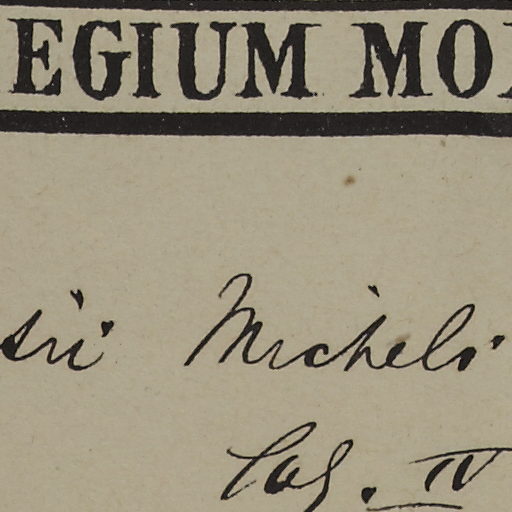 EGIUM MO
sii Micheli
Cas. IV